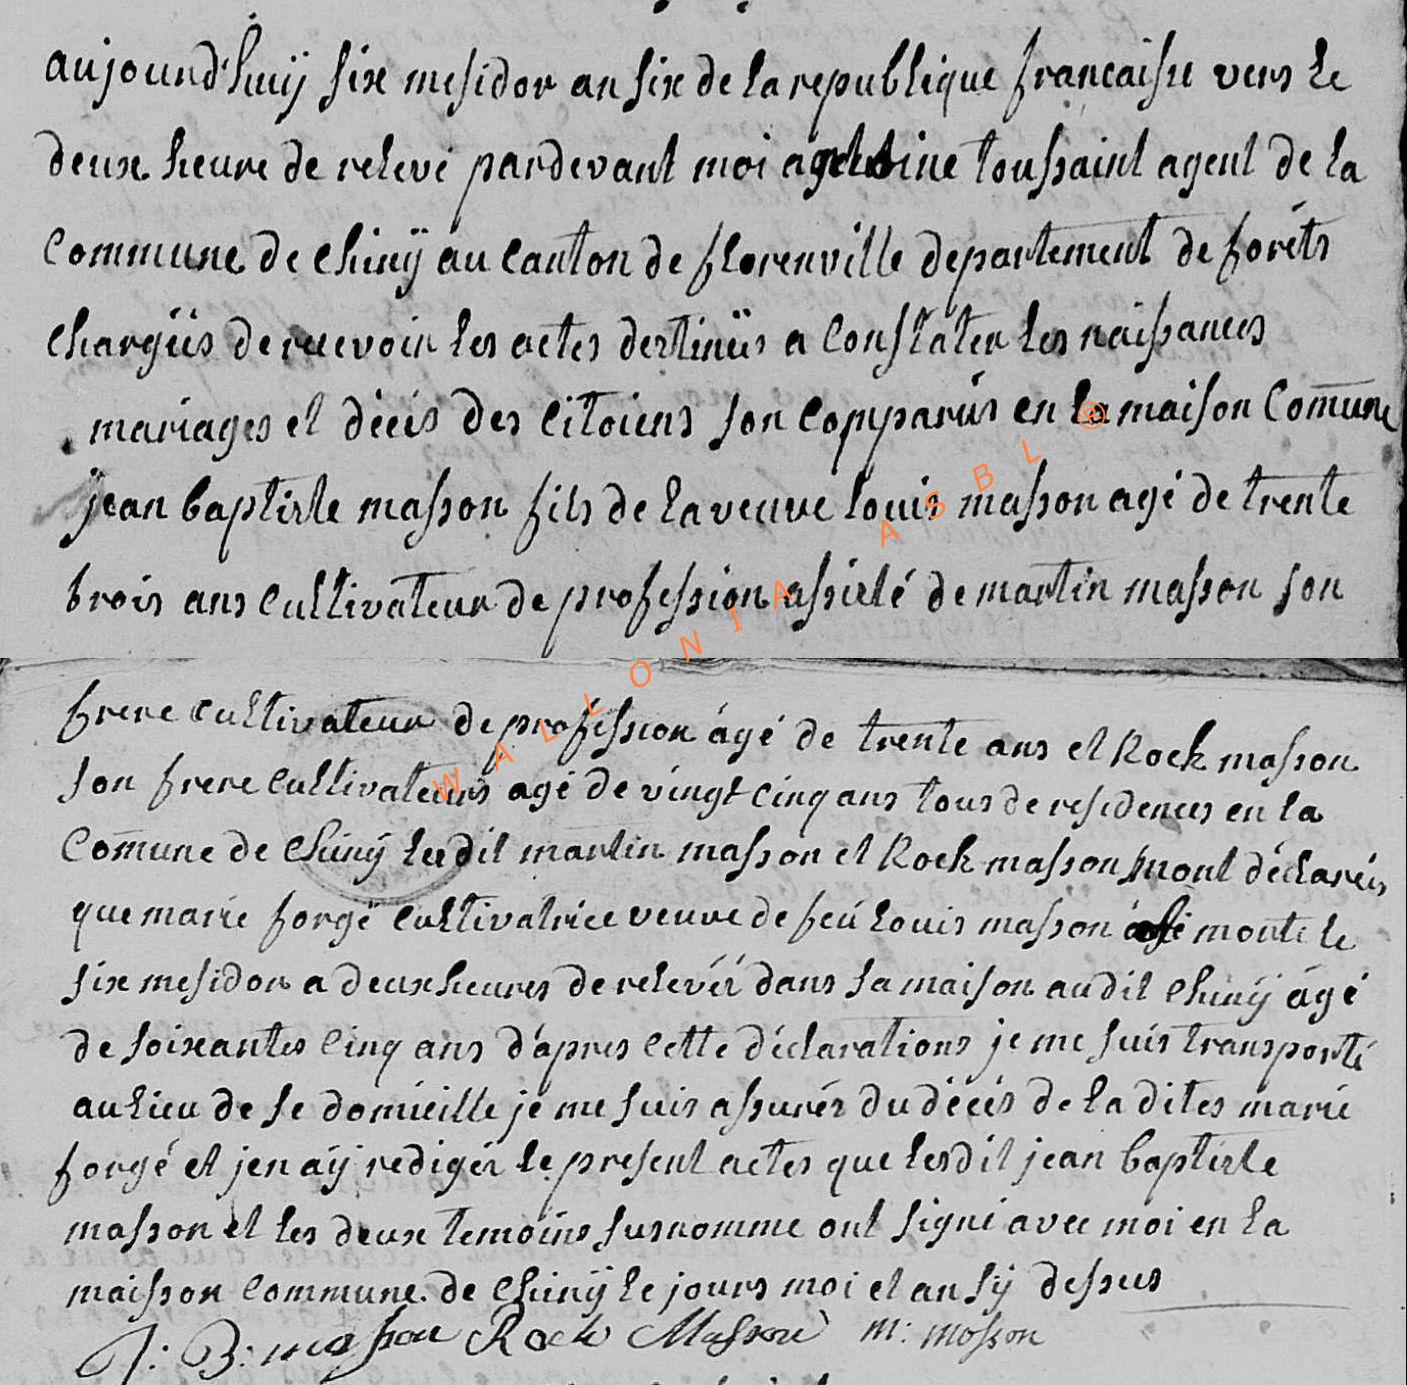 aujourd'huÿ six mesidor an six de la republique francaisse vers le
deux heure de relevé pardevant moi toussaint agent de la
Commune de Chinÿ au Canton de florenville departement de foréts
Chargéis de recevoir les actes destinéis a Constater les naissances
mariages et décés des Citoiens son Comparús en la maison Comūne
jean baptiste masson fils de la veuve louis masson agé de trente
trois ans Cultivateur de profession assisté de martin masson son
frere Cultivateur de profession ágé de trente ans et Rock masson
son frere Cultivateurs agé de vingt Cinq ans tous de residences en la
Comūne de Chinÿ ledit martin masson et Rock masson mont déclarés
que marie forgé Cultivatrice veuve de feú louis masson monte le
six mesidor a deux heures de relevéé dans sa maison audit Chinÿ ágé
de soixantes Cinq ans d'apres Cette déclarations je me suis transporté
au lieu de se domicille je me suis assurér du décés de la dites marie
forgé et jen aÿ redigér le present actes que lesdit jean baptiste
masson et les deux temoins susnomme ont signé avec moi en la
maisson Commune de Chinÿ le jours moi et an sÿ dessus
J: B: masson Rock Masson m: mosson
WALLONIA ASBL ®